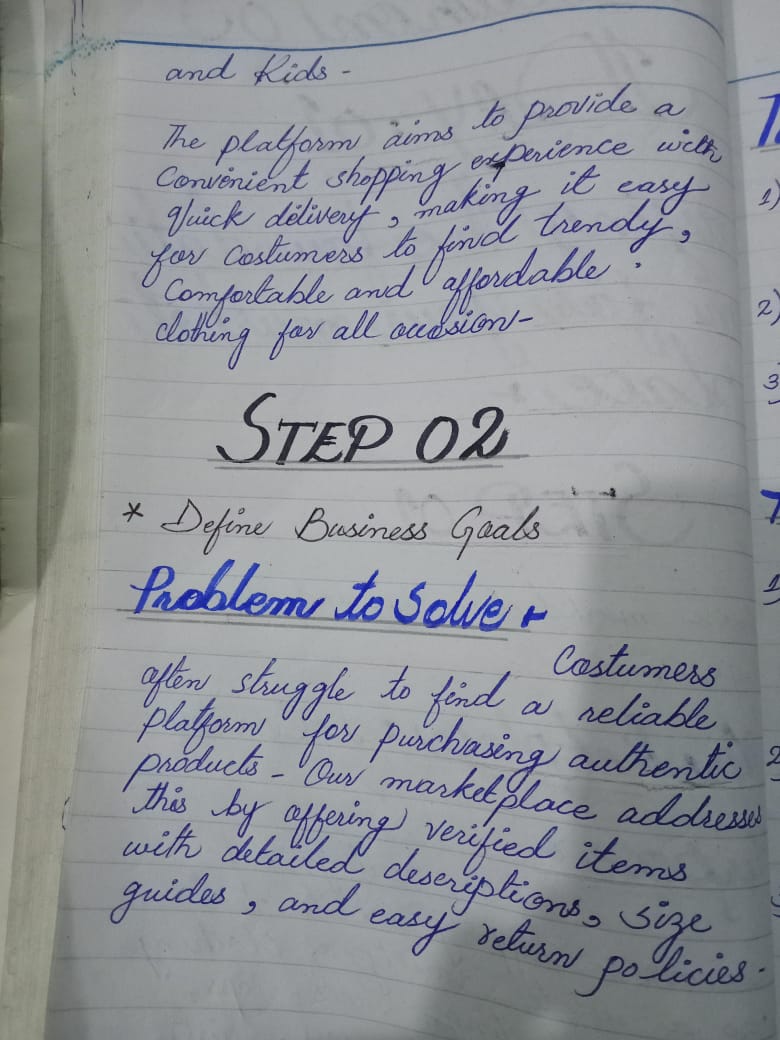 and Kids -
The platform aims to provide a
Convenient shopping experience with
Quick delivery, making it easy
for Costumers to find trendy,
Comfortable and affordable
clothing for all occasion -
STEP 02
* Define Business Goals
Problem to Solve
Costumers
often struggle to find a reliable
platform for purchasing authentic
products - Our marketplace addresses
this by offering verified items
with detailed descriptions, size
guides, and easy return policies.
1)
2)
3
1
2